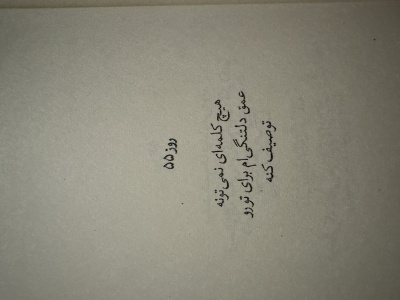 روز ۵۵
هیچ کلمه‌ای نمی‌تونه
عمق دلتنگی‌ام برای تو رو
توصیف کنه